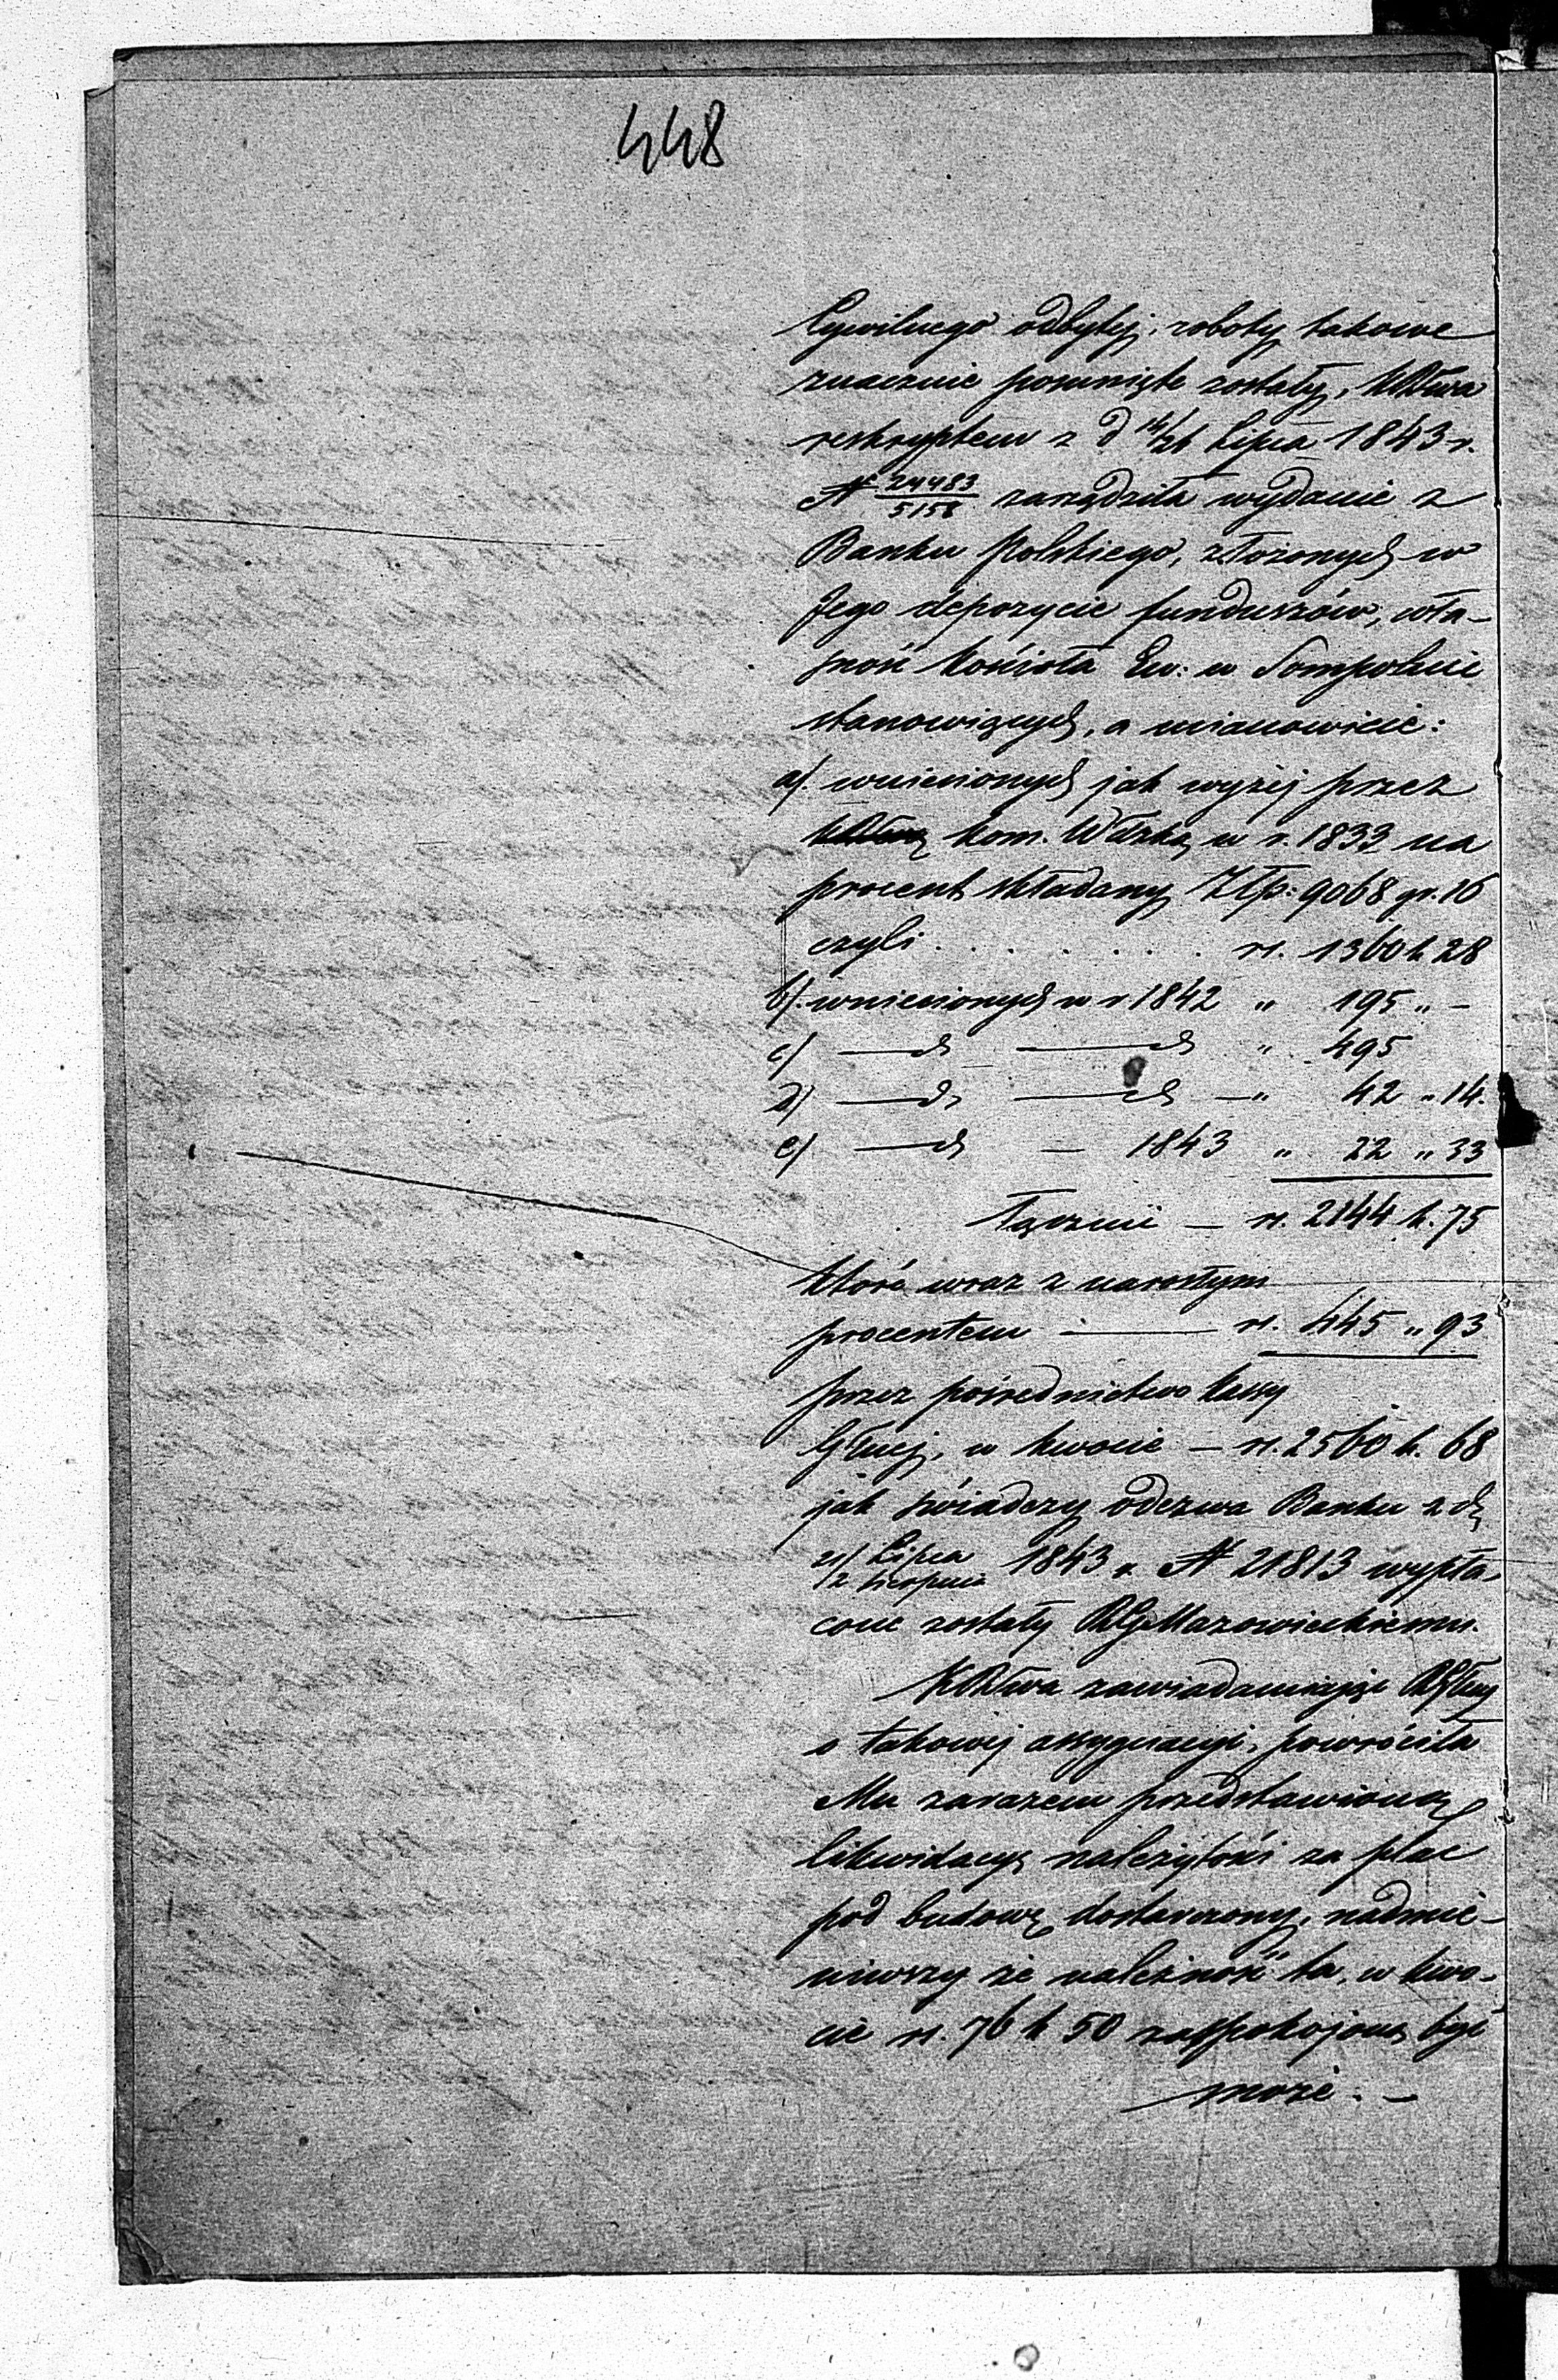 448
Cywilnego odbytej, roboty takowe
znacznie posunięte zostały, KRząwa
reskryptem z d 14/26 Lipca 1843 r.
N 24483/5158 zarządziła wydanie z
Banku Polskiego, złożonych w
Jego depozycie funduszów, wła-
sność kościoła Ew: w Sompolnie
stanowiących, a mianowicie:
a/. wniesionych jak wyżej przez
Kom. Wdzką w r. 1833 na
procent składany Złp: 9068 gr. 16
czyli . . . . . . . rs. 1360 k 28
b/. wniesionych w r 1842 " 195 " -
c/ —ch —ch " 495
d/ —ch —ch — " 42 " 14.
e/ —ch — 1843 " 22 " 33
Łącznie — rs. 2144 k. 75
które wraz z narosłym
procentem — rs. 445 " 93
przez pośrednictwo kassy
Głnej, w kwocie — rs. 2560 k. 68
jak świadczy odezwa Banku z d
21/2 Lipca/Sierpnia 1843 r N 21813 wypła-
cone zostały RGMazowieckiemu.
KRząwa zawiadamiając
o takowej assygnacyi, powróciła
Mu zarazem przedstawioną
likwidacyę należytości za plac
pod budowę dostarczony, nadmie-
niwszy że należność ta, w kwo-
cie rs. 76 k 50 zaspokojoną być
może. -